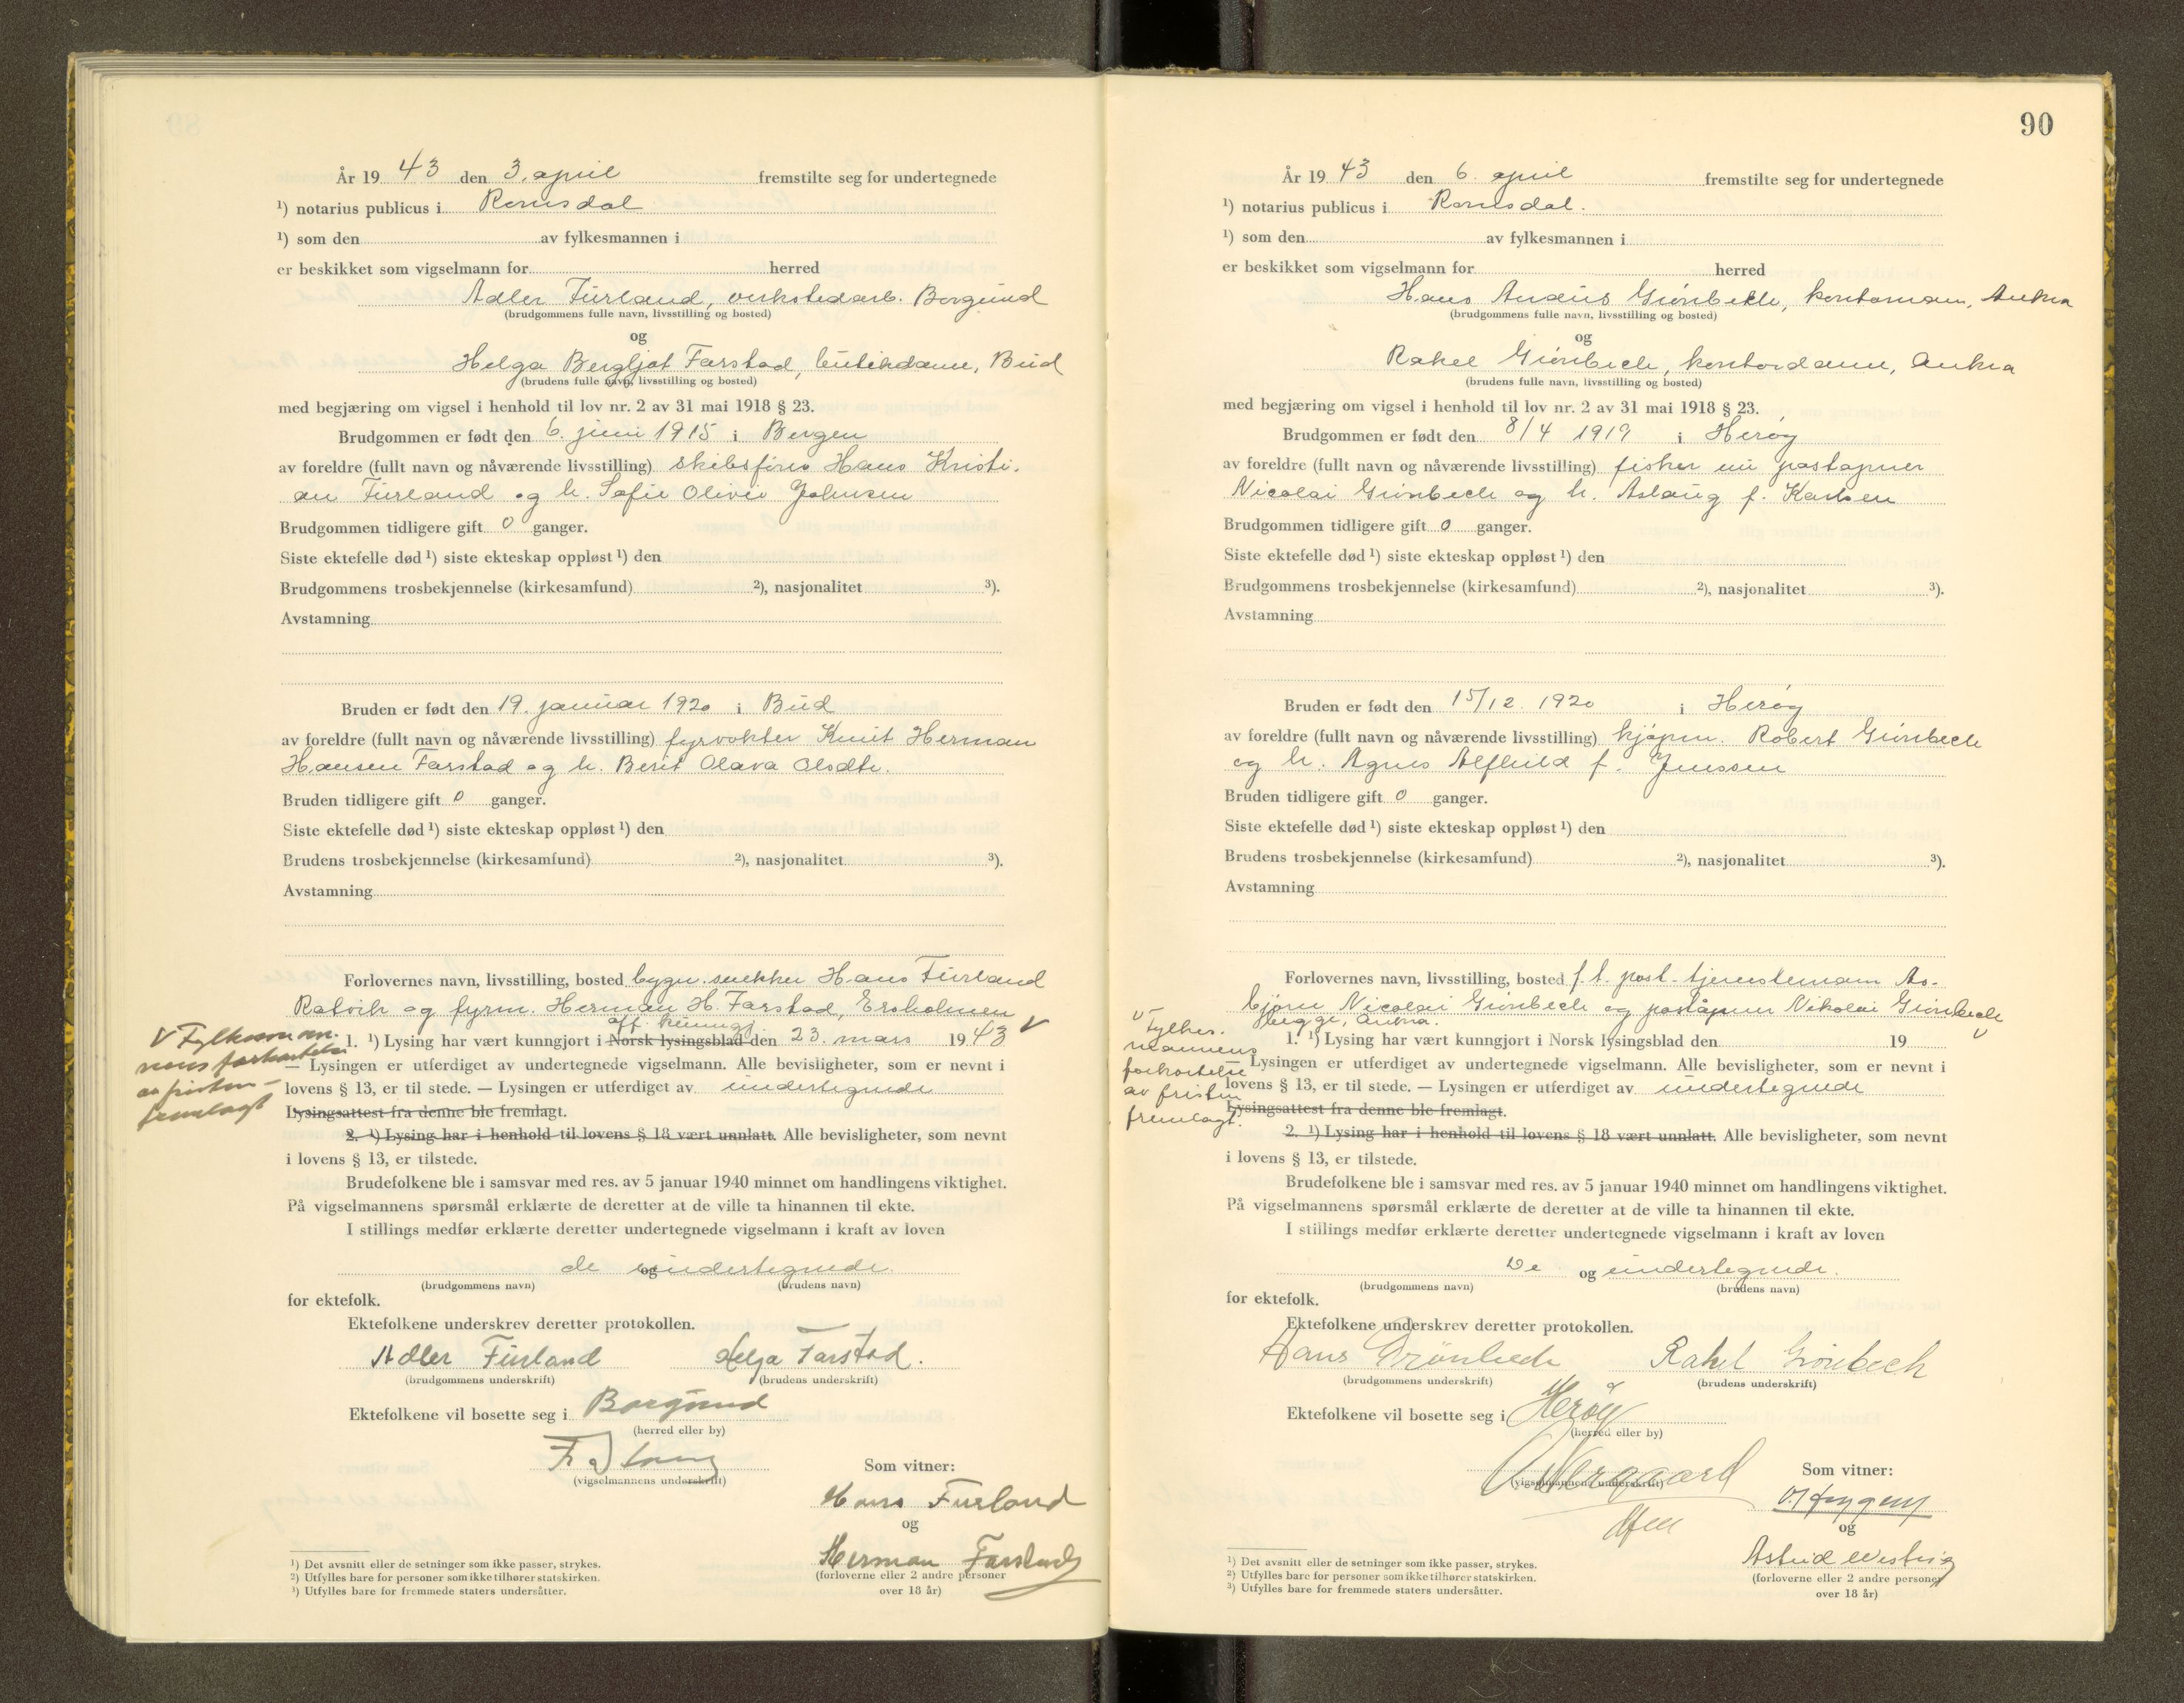 År 19 43 den 3. april fremstilte seg for undertegnede
¹) notarius publicus i Romsdal
¹) som den av fylkesmannen i
er beskikket som vigselmann for herred
Adler Furland, verkstedarb. Borgund
(brudgommens fulle navn, livsstilling og bosted)
og
Helga Bergljot Farstad, butikdame, Bud
(brudens fulle navn, livsstilling og bosted)
med begjæring om vigsel i henhold til lov nr. 2 av 31 mai 1918 § 23.
Brudgommen er født den 6. juni 1915 i Bergen
av foreldre (fullt navn og nåværende livsstilling) skibsfører Hans Kristi-
an Furland og h. Sofie Olivie Johnsen
Brudgommen tidligere gift 0 ganger.
Siste ektefelle død ¹) siste ekteskap oppløst ¹) den
Brudgommens trosbekjennelse (kirkesamfund) ²), nasjonalitet ³).
Avstamning
Bruden er født den 19. januar 1920 i Bud
av foreldre (fullt navn og nåværende livsstilling) fyrvokter Knut Herman
Hansen Farstad og h. Berit Olava Olsdtr.
Bruden tidligere gift 0 ganger.
Siste ektefelle død ¹) siste ekteskap oppløst ¹) den
Brudens trosbekjennelse (kirkesamfund) ²), nasjonalitet ³).
Avstamning
Forlovernes navn, livsstilling, bosted bygn. snekker Hans Furland
Ratvik og fyrm. Herman H. Farstad, Ersholmen
off. kunngj.
V Fylkesman-
nens forkortelse
av fristen
fremlagt
1. ¹) Lysing har vært kunngjort i Norsk lysingsblad den 23. mars 1943 V
— Lysingen er utferdiget av undertegnede vigselmann. Alle bevisligheter, som er nevnt i
lovens § 13, er til stede. — Lysingen er utferdiget av undertegnede
Lysingsattest fra denne ble fremlagt.
2. ¹) Lysing har i henhold til lovens § 18 vært unnlatt. Alle bevisligheter, som nevnt
i lovens § 13, er tilstede.
Brudefolkene ble i samsvar med res. av 5 januar 1940 minnet om handlingens viktighet.
På vigselmannens spørsmål erklærte de deretter at de ville ta hinannen til ekte.
I stillings medfør erklærte deretter undertegnede vigselmann i kraft av loven
de og undertegnede.
(brudgommens navn) (brudens navn)
for ektefolk.
Ektefolkene underskrev deretter protokollen.
Adler Furland Helga Farstad.
(brudgommens underskrift) (brudens underskrift)
Ektefolkene vil bosette seg i Borgund
(herred eller by)
(vigselmannens underskrift) Som vitner:
Hans Furland
og
Herman Farstad
(forloverne eller 2 andre personer
over 18 år)
¹) Det avsnitt eller de setninger som ikke passer, strykes.
²) Utfylles bare for personer som ikke tilhører statskirken.
³) Utfylles bare for fremmede staters undersåtter.
90
År 19 43 den 6. april fremstilte seg for undertegnede
¹) notarius publicus i Romsdal.
¹) som den av fylkesmannen i
er beskikket som vigselmann for herred
Hans Grønbech, kontormann, Aukra
(brudgommens fulle navn, livsstilling og bosted)
og
Rakel Grønbech, kontordame, Aukra
(brudens fulle navn, livsstilling og bosted)
med begjæring om vigsel i henhold til lov nr. 2 av 31 mai 1918 § 23.
Brudgommen er født den 8/4 1919 i Herøy
av foreldre (fullt navn og nåværende livsstilling) fisker nu poståpner
Nicolai Grønbech og h. Aslaug f. Karlsen
Brudgommen tidligere gift 0 ganger.
Siste ektefelle død ¹) siste ekteskap oppløst ¹) den
Brudgommens trosbekjennelse (kirkesamfund) ²), nasjonalitet ³).
Avstamning
Bruden er født den 15/12 1920 i Herøy
av foreldre (fullt navn og nåværende livsstilling) kjøpm. Robert Grønbech
og h. Agnes Alfhild f. Jenssen
Bruden tidligere gift 0 ganger.
Siste ektefelle død ¹) siste ekteskap oppløst ¹) den
Brudens trosbekjennelse (kirkesamfund) ²), nasjonalitet ³).
Avstamning
Forlovernes navn, livsstilling, bosted f.t. post-tjenestemann As-
bjørn Nicolai Grønbech og poståpner Nikolai Grønbech
begge, Aukra.
V Fylkes-
mannens
forkortelse
av fristen
fremlagt.
1. ¹) Lysing har vært kunngjort i Norsk lysingsblad den 19 V
— Lysingen er utferdiget av undertegnede vigselmann. Alle bevisligheter, som er nevnt i
lovens § 13, er til stede. — Lysingen er utferdiget av undertegnede
Lysingsattest fra denne ble fremlagt.
2. ¹) Lysing har i henhold til lovens § 18 vært unnlatt. Alle bevisligheter, som nevnt
i lovens § 13, er tilstede.
Brudefolkene ble i samsvar med res. av 5 januar 1940 minnet om handlingens viktighet.
På vigselmannens spørsmål erklærte de deretter at de ville ta hinannen til ekte.
I stillings medfør erklærte deretter undertegnede vigselmann i kraft av loven
De og undertegnede.
(brudgommens navn) (brudens navn)
for ektefolk.
Ektefolkene underskrev deretter protokollen.
Hans Grønbech Rakel Grønbech
(brudgommens underskrift) (brudens underskrift)
Ektefolkene vil bosette seg i Herøy
(herred eller by)
(vigselmannens underskrift) Som vitner:
og
Astrid
(forloverne eller 2 andre personer
over 18 år)
¹) Det avsnitt eller de setninger som ikke passer, strykes.
²) Utfylles bare for personer som ikke tilhører statskirken.
³) Utfylles bare for fremmede staters undersåtter.